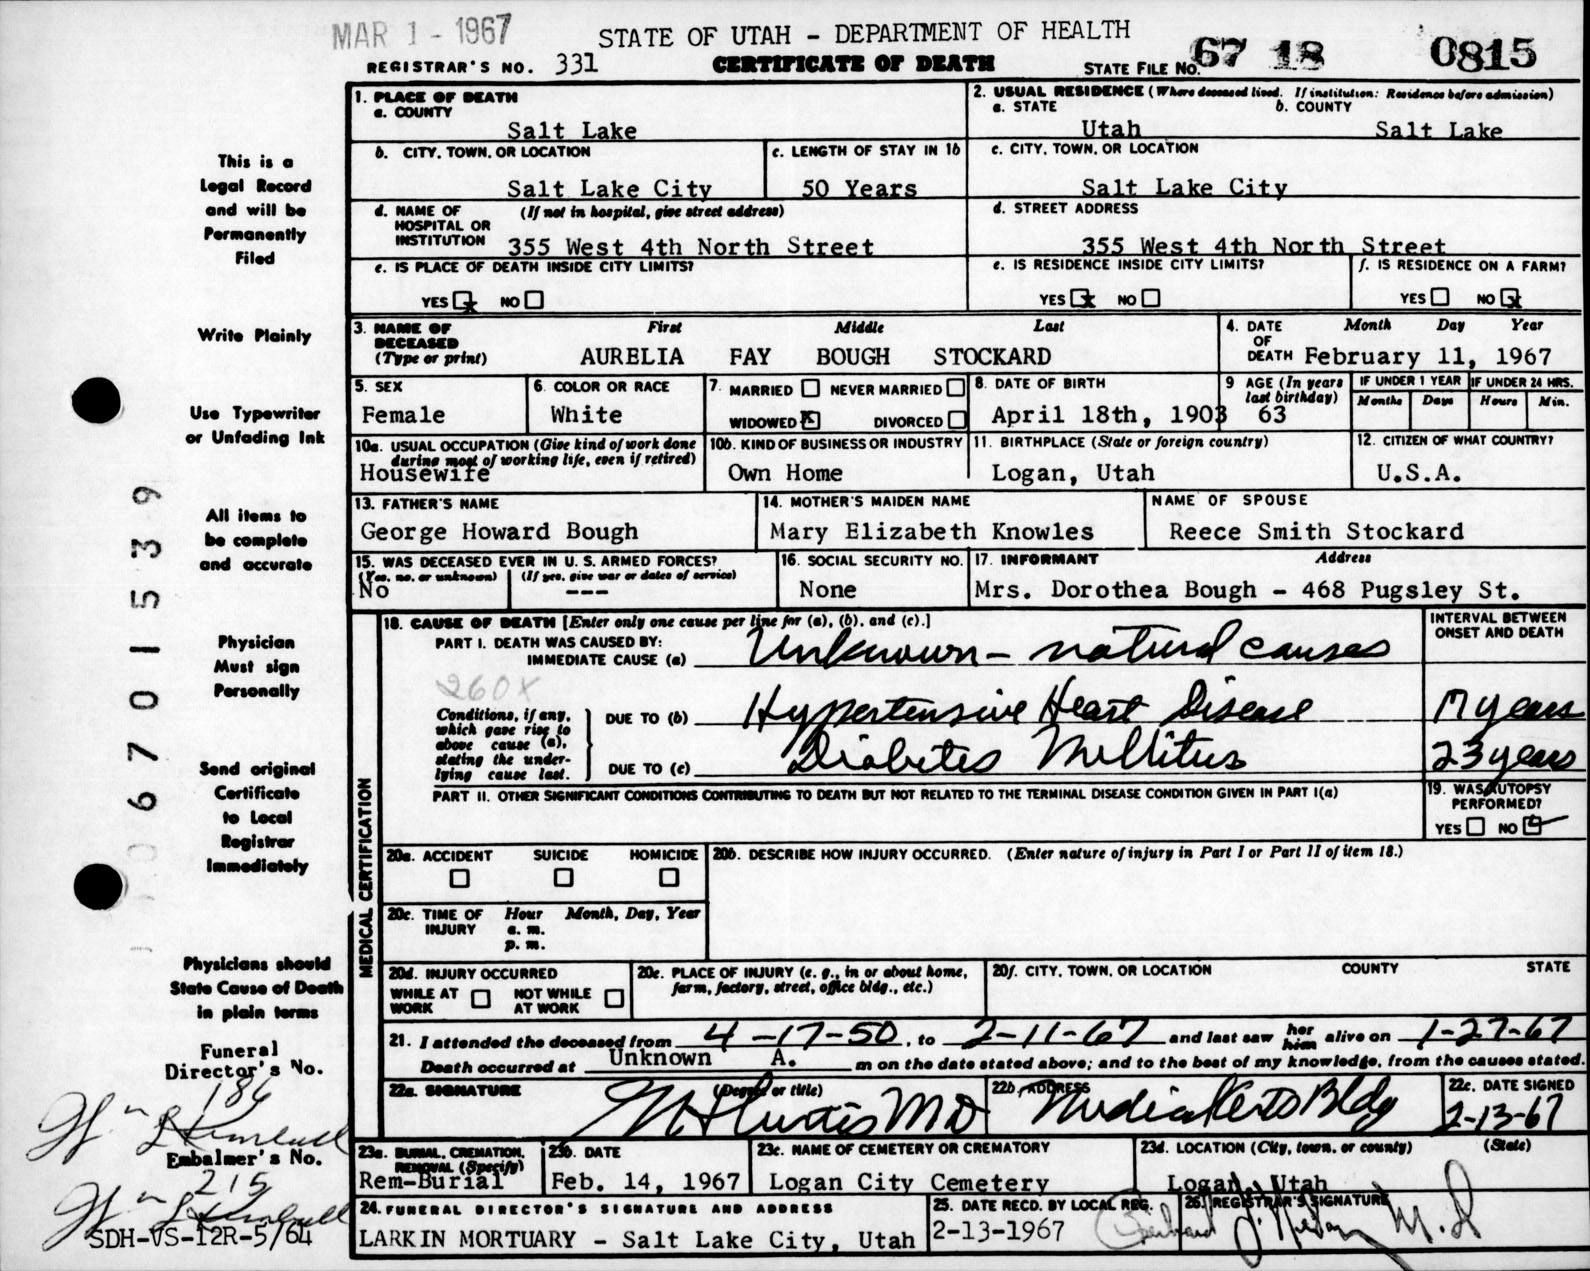 MAR 1 - 1967
STATE OF UTAH - DEPARTMENT OF HEALTH
REGISTRAR'S NO. 331
CERTIFICATE OF DEATH
STATE FILE NO. 67 18 0815
1. PLACE OF DEATH
a. COUNTY
Salt Lake
2. USUAL RESIDENCE (Where deceased lived. If institution: Residence before admission)
a. STATE b. COUNTY
Utah Salt Lake
b. CITY, TOWN, OR LOCATION
Salt Lake City
c. LENGTH OF STAY IN 1b
50 Years
c. CITY, TOWN, OR LOCATION
Salt Lake City
d. NAME OF HOSPITAL OR INSTITUTION (If not in hospital, give street address)
355 West 4th North Street
d. STREET ADDRESS
355 West 4th North Street
e. IS PLACE OF DEATH INSIDE CITY LIMITS?
YES x NO
e. IS RESIDENCE INSIDE CITY LIMITS?
YES x NO
f. IS RESIDENCE ON A FARM?
YES NO x
3. NAME OF DECEASED (Type or print)
First Middle Last
AURELIA FAY BOUGH STOCKARD
4. DATE OF DEATH
Month Day Year
February 11, 1967
5. SEX
Female
6. COLOR OR RACE
White
7. MARRIED NEVER MARRIED
WIDOWED x DIVORCED
8. DATE OF BIRTH
April 18th, 1903
9 AGE (In years last birthday)
63
IF UNDER 1 YEAR
Months Days
IF UNDER 24 HRS.
Hours Min.
10a. USUAL OCCUPATION (Give kind of work done during most of working life, even if retired)
Housewife
10b. KIND OF BUSINESS OR INDUSTRY
Own Home
11. BIRTHPLACE (State or foreign country)
Logan, Utah
12. CITIZEN OF WHAT COUNTRY?
U.S.A.
13. FATHER'S NAME
George Howard Bough
14. MOTHER'S MAIDEN NAME
Mary Elizabeth Knowles
NAME OF SPOUSE
Reece Smith Stockard
15. WAS DECEASED EVER IN U. S. ARMED FORCES?
(Yes, no, or unknown) (If yes, give war or dates of service)
No ---
16. SOCIAL SECURITY NO.
None
17. INFORMANT Address
Mrs. Dorothea Bough - 468 Pugsley St.
MEDICAL CERTIFICATION
18. CAUSE OF DEATH [Enter only one cause per line for (a), (b), and (c).]
INTERVAL BETWEEN ONSET AND DEATH
PART I. DEATH WAS CAUSED BY:
IMMEDIATE CAUSE (a) Unknown - natural causes
260X
Conditions, if any, which gave rise to above cause (a), stating the underlying cause last.
DUE TO (b) Hypertensive Heart Disease 17 years
DUE TO (c) Diabetes Mellitus 23 years
PART II. OTHER SIGNIFICANT CONDITIONS CONTRIBUTING TO DEATH BUT NOT RELATED TO THE TERMINAL DISEASE CONDITION GIVEN IN PART I(a)
19. WAS AUTOPSY PERFORMED?
YES NO
20a. ACCIDENT SUICIDE HOMICIDE
20b. DESCRIBE HOW INJURY OCCURRED. (Enter nature of injury in Part I or Part II of item 18.)
20c. TIME OF INJURY Hour Month, Day, Year
a. m.
p. m.
20d. INJURY OCCURRED
WHILE AT WORK NOT WHILE AT WORK
20e. PLACE OF INJURY (e. g., in or about home, farm, factory, street, office bldg., etc.)
20f. CITY, TOWN, OR LOCATION COUNTY STATE
21. I attended the deceased from 4-17-50, to 2-11-67 and last saw her him alive on 1-27-67
Death occurred at Unknown A. m on the date stated above; and to the best of my knowledge, from the causes stated.
22a. SIGNATURE (Degree or title)
Curtis MD
22b. ADDRESS
Medical Arts Bldg
22c. DATE SIGNED
2-13-67
23a. BURIAL, CREMATION, REMOVAL (Specify)
Rem-Burial
23b. DATE
Feb. 14, 1967
23c. NAME OF CEMETERY OR CREMATORY
Logan City Cemetery
23d. LOCATION (City, town, or county) (State)
Logan, Utah
24. FUNERAL DIRECTOR'S SIGNATURE AND ADDRESS
LARKIN MORTUARY - Salt Lake City, Utah
25. DATE RECD. BY LOCAL REG.
2-13-1967
26. REGISTRAR'S SIGNATURE
M.D
This is a
Legal Record
and will be
Permanently
Filed
Write Plainly
Use Typewriter
or Unfading Ink
All items to
be complete
and accurate
Physician
Must sign
Personally
Send original
Certificate
to Local
Registrar
Immediately
Physicians should
State Cause of Death
in plain terms
Funeral
Director's No.
186
Embalmer's No.
215
SDH-VS-12R-5/64
06701539